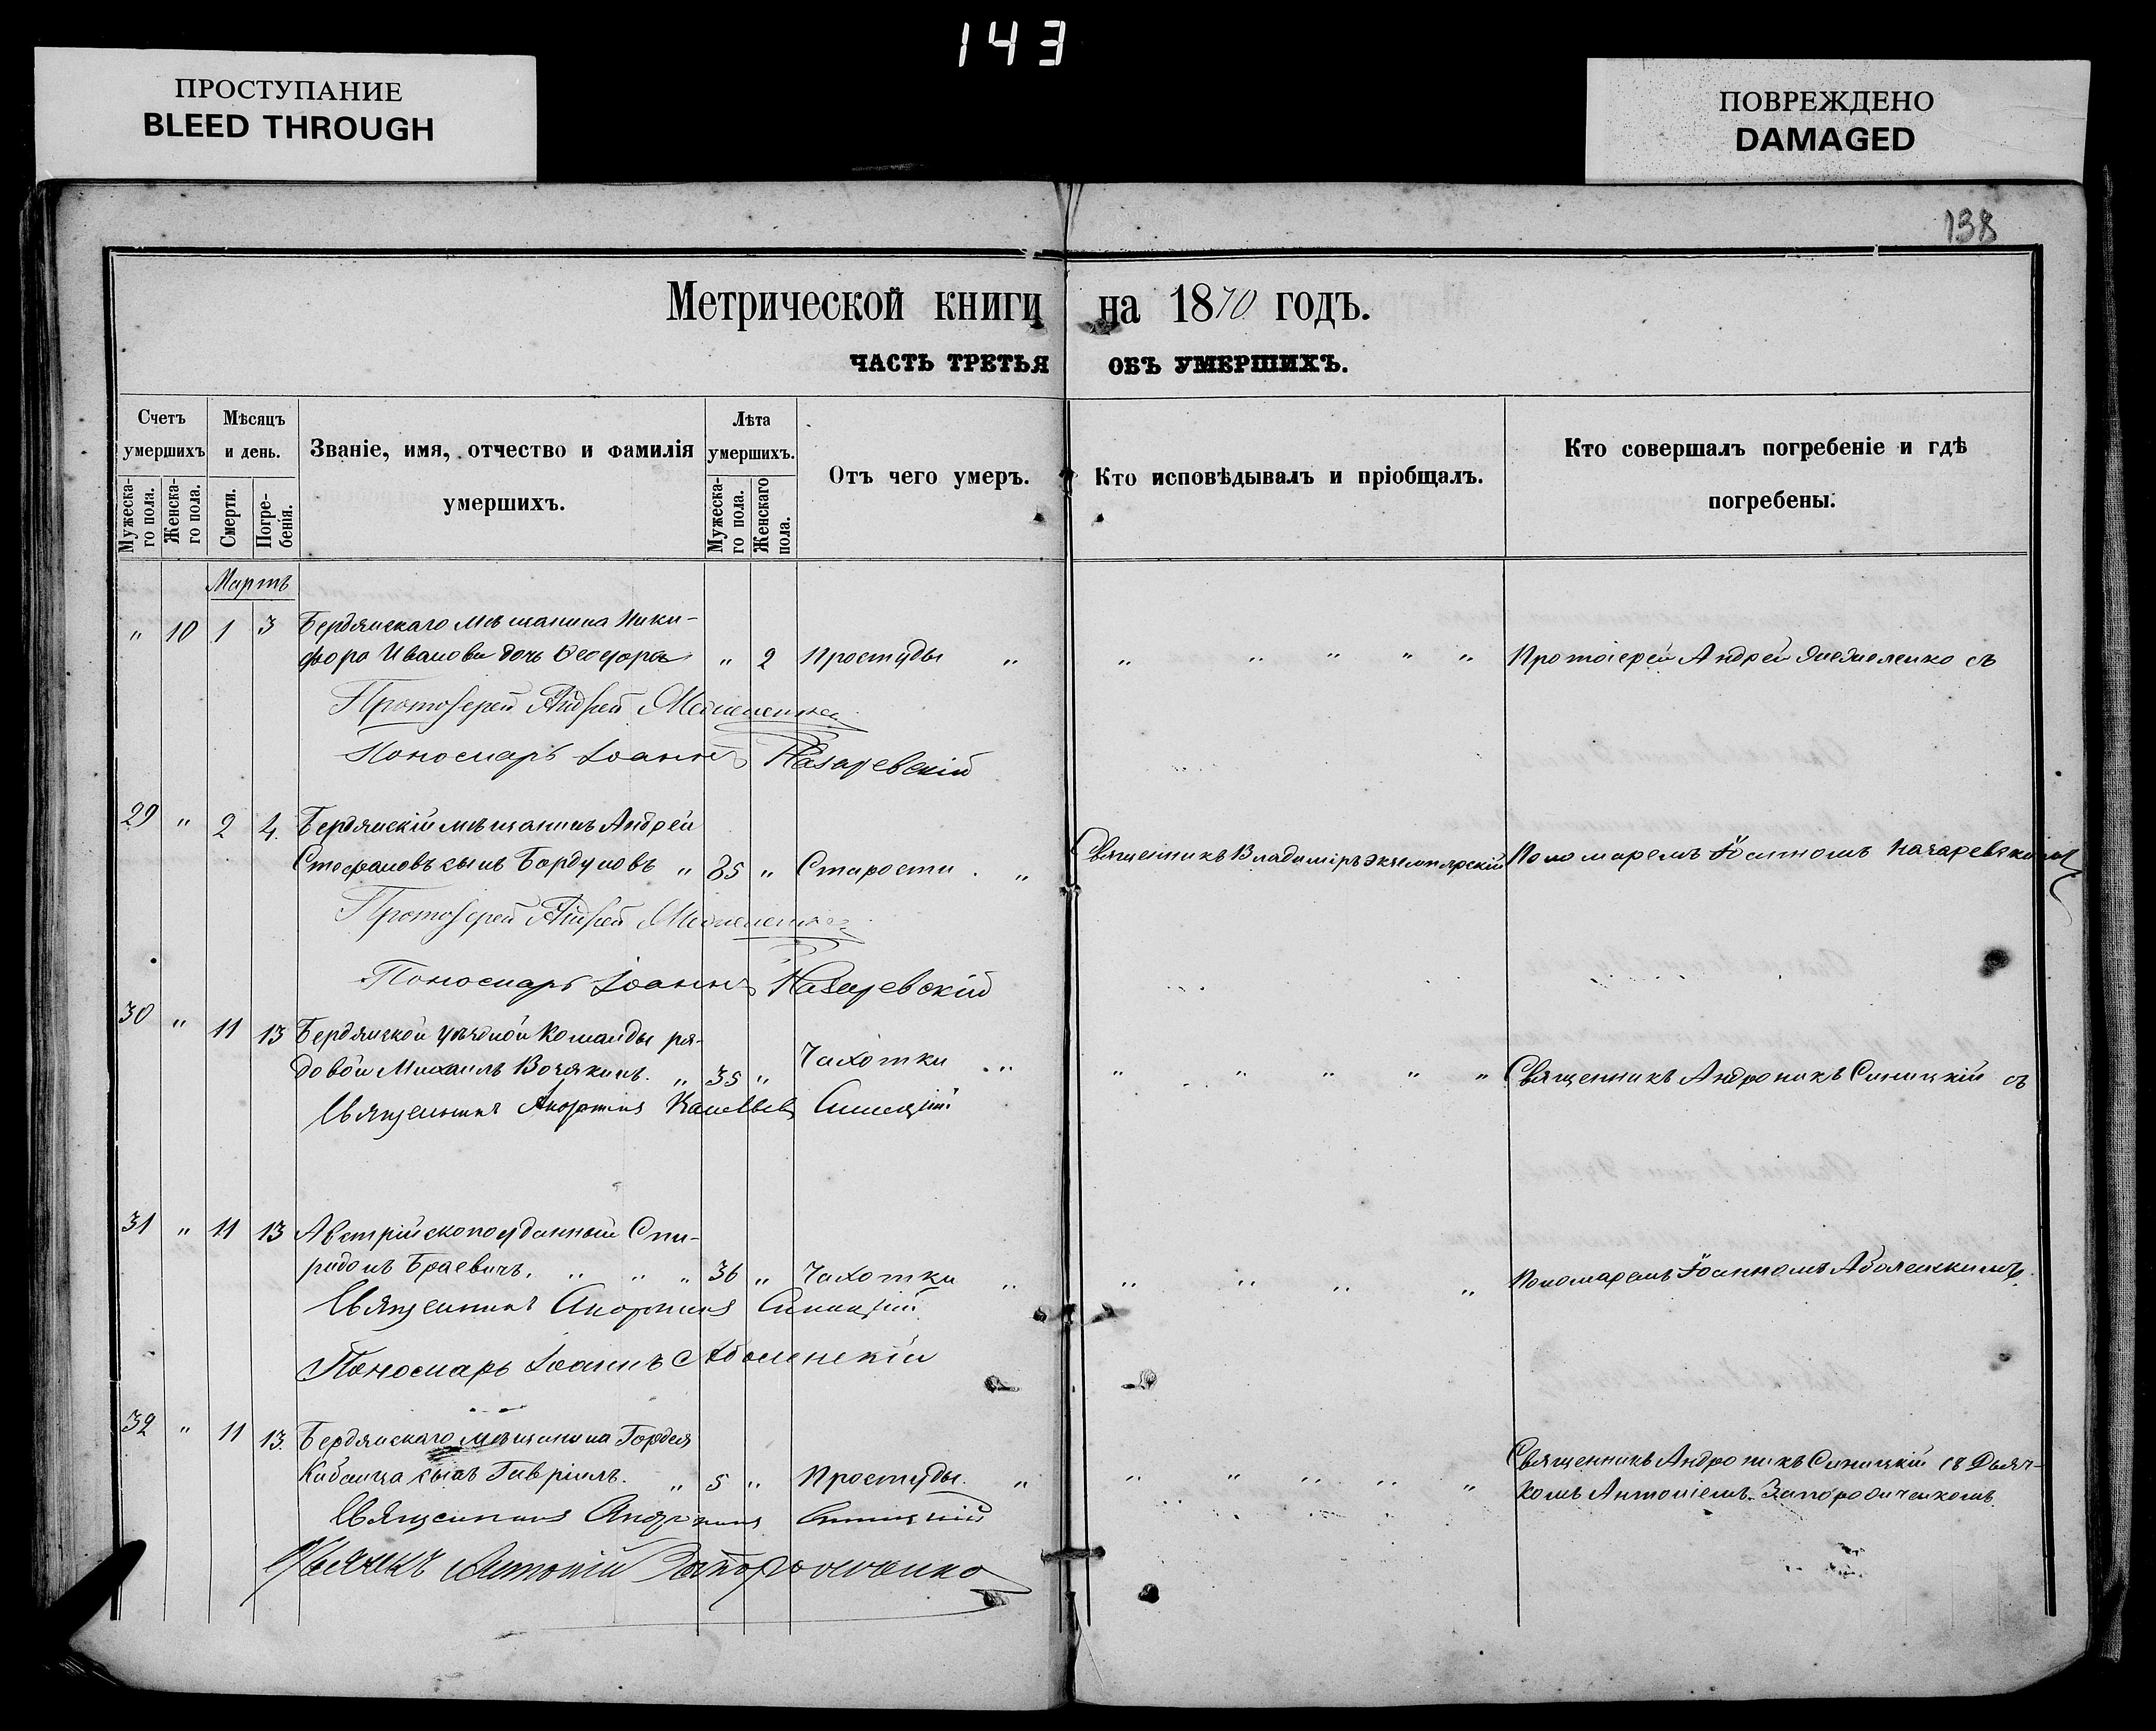 143
ПРОСТУПАНИЕ
BLEED THROUGH
ПОВРЕЖДЕНО
DAMAGED
138
Метрической книги на 1870 годъ.
ЧАСТЬ ТРЕТЬЯ ОБЪ УМЕРШИХЪ.
Счетъ умершихъ
Мужескаго пола.
Женскаго пола.
Мѣсяцъ и день.
Смерти.
Погребенія.
Званіе, имя, отчество и фамилія умершихъ.
Лѣта умершихъ.
Мужескаго пола.
Женскаго пола.
Отъ чего умеръ.
Кто исповѣдывалъ и пріобщалъ.
Кто совершалъ погребеніе и гдѣ погребены.
Мартъ
" 10 1 3 Бердянскаго мѣщанина Ники-
фора Иванова дочь Ѳеодора " 2 Простуды " " " " " " Протоіерей Андрей съ
Протоіерей Андрей
Пономарь Іоаннъ Назаревскій
29 " 2 4. Бердянскій мѣщанинъ Андрей
Стефановъ сынъ Бордуновъ " 85 " Старости . " Священникъ Владиміръ Экземплярскій Пономаремъ Іоанномъ Назаревскимъ
Протоіерей Андрей
Пономарь Іоаннъ Назаревскій
30 " 11 13 Бердянской уѣздной Команды ря-
довой Михаилъ " 35 " Чахотки " " " " " " Священникъ Андроникъ Синицкій съ
Священникъ Андроникъ Синицкій
31 " 11 13 Австрійскоподданный Спи-
ридонъ Браевичъ. " " " 36 " Чахотки " " " " " Пономаремъ Іоанномъ Аболенскимъ.
Священникъ Андроникъ Синицкій
Пономарь Іоаннъ Аболенскій
32 " 11 13. Бердянскаго мѣщанина Гордея
сынъ Гавріилъ. " 5 " Простуды. " " " " " " Священникъ Андроникъ Синицкій съ Дьяч-
комъ Антоніемъ
Священникъ Андроникъ Синицкій
Дьячекъ Антоній